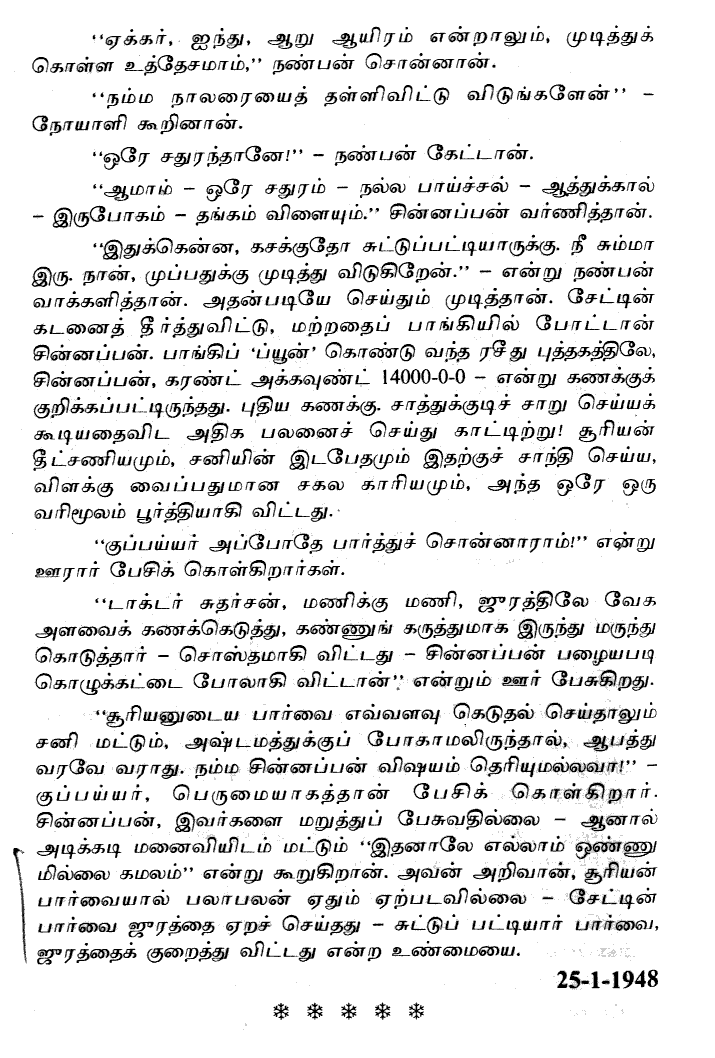 “ஏக்கர், ஐந்து, ஆறு ஆயிரம் என்றாலும், முடித்துக்
கொள்ள உத்தேசமாம்,” நண்பன் சொன்னான்.
“நம்ம நாலரையைத் தள்ளிவிட்டு விடுங்களேன்” –
நோயாளி கூறினான்.
“ஒரே சதுரந்தானே!” – நண்பன் கேட்டான்.
“ஆமாம் – ஒரே சதுரம் – நல்ல பாய்ச்சல் – ஆத்துக்கால்
– இருபோகம் – தங்கம் விளையும்.” சின்னப்பன் வர்ணித்தான்.
“இதுக்கென்ன, கசக்குதோ சுட்டுப்பட்டியாருக்கு. நீ சும்மா
இரு. நான், முப்பதுக்கு முடித்து விடுகிறேன்.” – என்று நண்பன்
வாக்களித்தான். அதன்படியே செய்தும் முடித்தான். சேட்டின்
கடனைத் தீர்த்துவிட்டு, மற்றதைப் பாங்கியில் போட்டான்
சின்னப்பன். பாங்கிப் ‘ப்யூன்’ கொண்டு வந்த ரசீது புத்தகத்திலே,
சின்னப்பன், கரண்ட் அக்கவுண்ட் 14000-0-0 – என்று கணக்குக்
குறிக்கப்பட்டிருந்தது. புதிய கணக்கு. சாத்துக்குடிச் சாறு செய்யக்
கூடியதைவிட அதிக பலனைச் செய்து காட்டிற்று! சூரியன்
தீட்சணியமும், சனியின் இடபேதமும் இதற்குச் சாந்தி செய்ய,
விளக்கு வைப்பதுமான சகல காரியமும், அந்த ஒரே ஒரு
வரிமூலம் பூர்த்தியாகி விட்டது.
“குப்பய்யர் அப்போதே பார்த்துச் சொன்னாராம்!” என்று
ஊரார் பேசிக் கொள்கிறார்கள்.
“டாக்டர் சுதர்சன், மணிக்கு மணி, ஜுரத்திலே வேக
அளவைக் கணக்கெடுத்து, கண்ணுங் கருத்துமாக இருந்து மருந்து
கொடுத்தார் – சொஸ்தமாகி விட்டது – சின்னப்பன் பழையபடி
கொழுக்கட்டை போலாகி விட்டான்” என்றும் ஊர் பேசுகிறது.
“சூரியனுடைய பார்வை எவ்வளவு கெடுதல் செய்தாலும்
சனி மட்டும், அஷ்டமத்துக்குப் போகாமலிருந்தால், ஆபத்து
வரவே வராது. நம்ம சின்னப்பன் விஷயம் தெரியுமல்லவா!” –
குப்பய்யர், பெருமையாகத்தான் பேசிக் கொள்கிறார்.
சின்னப்பன், இவர்களை மறுத்துப் பேசுவதில்லை – ஆனால்
அடிக்கடி மனைவியிடம் மட்டும் “இதனாலே எல்லாம் ஒண்ணு
மில்லை கமலம்” என்று கூறுகிறான். அவன் அறிவான், சூரியன்
பார்வையால் பலாபலன் ஏதும் ஏற்படவில்லை – சேட்டின்
பார்வை ஜுரத்தை ஏறச் செய்தது – சுட்டுப் பட்டியார் பார்வை,
ஜுரத்தைக் குறைத்து விட்டது என்ற உண்மையை.
25-1-1948